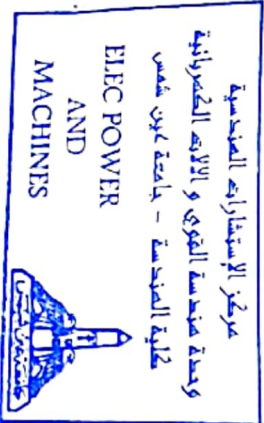 مركز الإستشارات الهندسية
وحدة هندسة القوى و الآلات الكهربائية
كلية الهندسة - جامعة عين شمس
ELEC POWER
AND
MACHINES